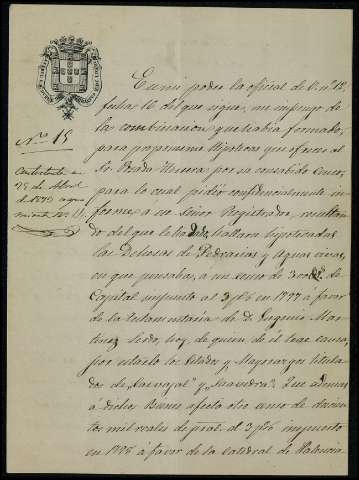 Nº 15
Contestada en
25 de Abril
de 1893
En mi poder la oficial de V. nº 12,
fecha 16 del que sigue, me impongo de
la combinación que había formado,
para proponerme Hipotecas que ofrece el
Sr. Prado Herrera por su consabido Censo,
para lo cual pidió confidencialmente in-
forme a un Señor Registrador, resultan-
do del que le ha dado, hallarse hipotecadas
las Dehesas de Pedrarias y Aguas vivas,
en que pensaba, á un censo de
Capital impuesto al 3 p% en 1777 á favor
de la testamentaria de D. Eugenio Mar-
tinez hoy de quien de él trae causa,
por estarlo los Estados y Mayorazgos titula-
dos de "Carvajal" y "Saavedra". Que además
á dichos Bienes afecta otro censo de
mil reales de pral. al 3 p% impuesto
en 1775 á favor de la Catedral de Palencia